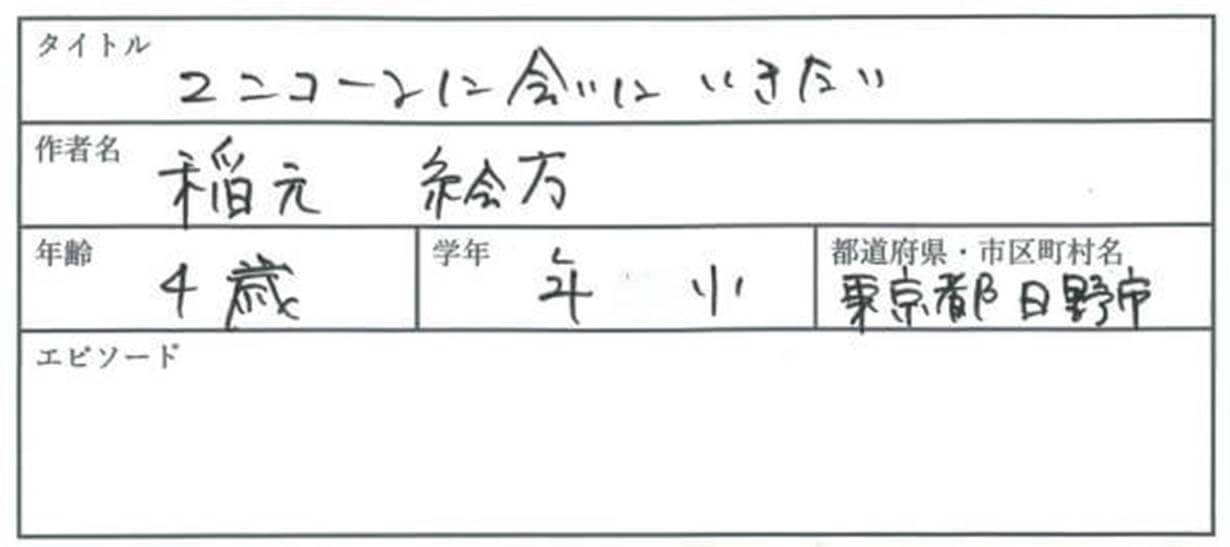 タイトル
ユニコーンに会いに いきたい
作者名
稲元 絵万
年齢
4歳
学年
年 小
都道府県・市区町村名
東京都 日野市
エピソード